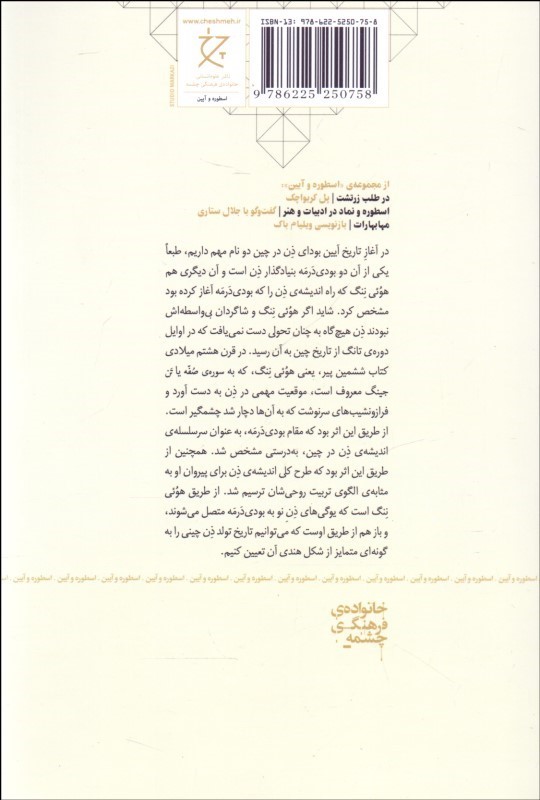 www.cheshmeh.ir
ISBN-13: 978-622-5250-75-8
9 786225 250758
اسطوره و آیین
STUDIO MARKAZI
از مجموعه‌ی «اسطوره و آیین»:
در طلب زرتشت | پل کریواچک
اسطوره و نماد در ادبیات و هنر | گفت‌وگو با جلال ستاری
مهابهارات | بازنویسی ویلیام باک
در آغازِ تاریخ آیین بودای ذِن در چین دو نام مهم داریم، طبعاً
یکی از آن دو بودی‌دَرمَه بنیادگذار ذِن است و آن دیگری هم
هوئی نِنگ که راه اندیشه‌ی ذِن را که بودی‌دَرمَه آغاز کرده بود
مشخص کرد. شاید اگر هوئی نِنگ و شاگردان بی‌واسطه‌اش
نبودند ذِن هیچ‌گاه به چنان تحولی دست نمی‌یافت که در اوایل
دوره‌ی تانگ از تاریخ چین به آن رسید. در قرن هشتم میلادی
کتاب ششمین پیر، یعنی هوئی نِنگ، که به سوره‌ی صُفّه یا تن
جینگ معروف است، موقعیت مهمی در ذِن به دست آورد و
فرازونشیب‌های سرنوشت که به آن‌ها دچار شد چشمگیر است.
از طریق این اثر بود که مقام بودی‌دَرمَه، به عنوان سرسلسله‌ی
اندیشه‌ی ذِن در چین، به‌درستی مشخص شد. همچنین از
طریق این اثر بود که طرح کلی اندیشه‌ی ذِن برای پیروان او به
مثابه‌ی الگوی تربیت روحی‌شان ترسیم شد. از طریق هوئی
نِنگ است که یوگی‌های ذِنِ نو به بودی‌دَرمَه متصل می‌شوند،
و باز هم از طریق اوست که می‌توانیم تاریخ تولد ذِن چینی را به
گونه‌ای متمایز از شکل هندی آن تعیین کنیم.
اسطوره و آیین . اسطوره و آیین . اسطوره و آیین . اسطوره و آیین . اسطوره و آیین . اسطوره و آیین . اسطوره و آیین . اسطوره و آیین . اسطوره و آیین
خانواده‌ی
فرهنگی
چشمه